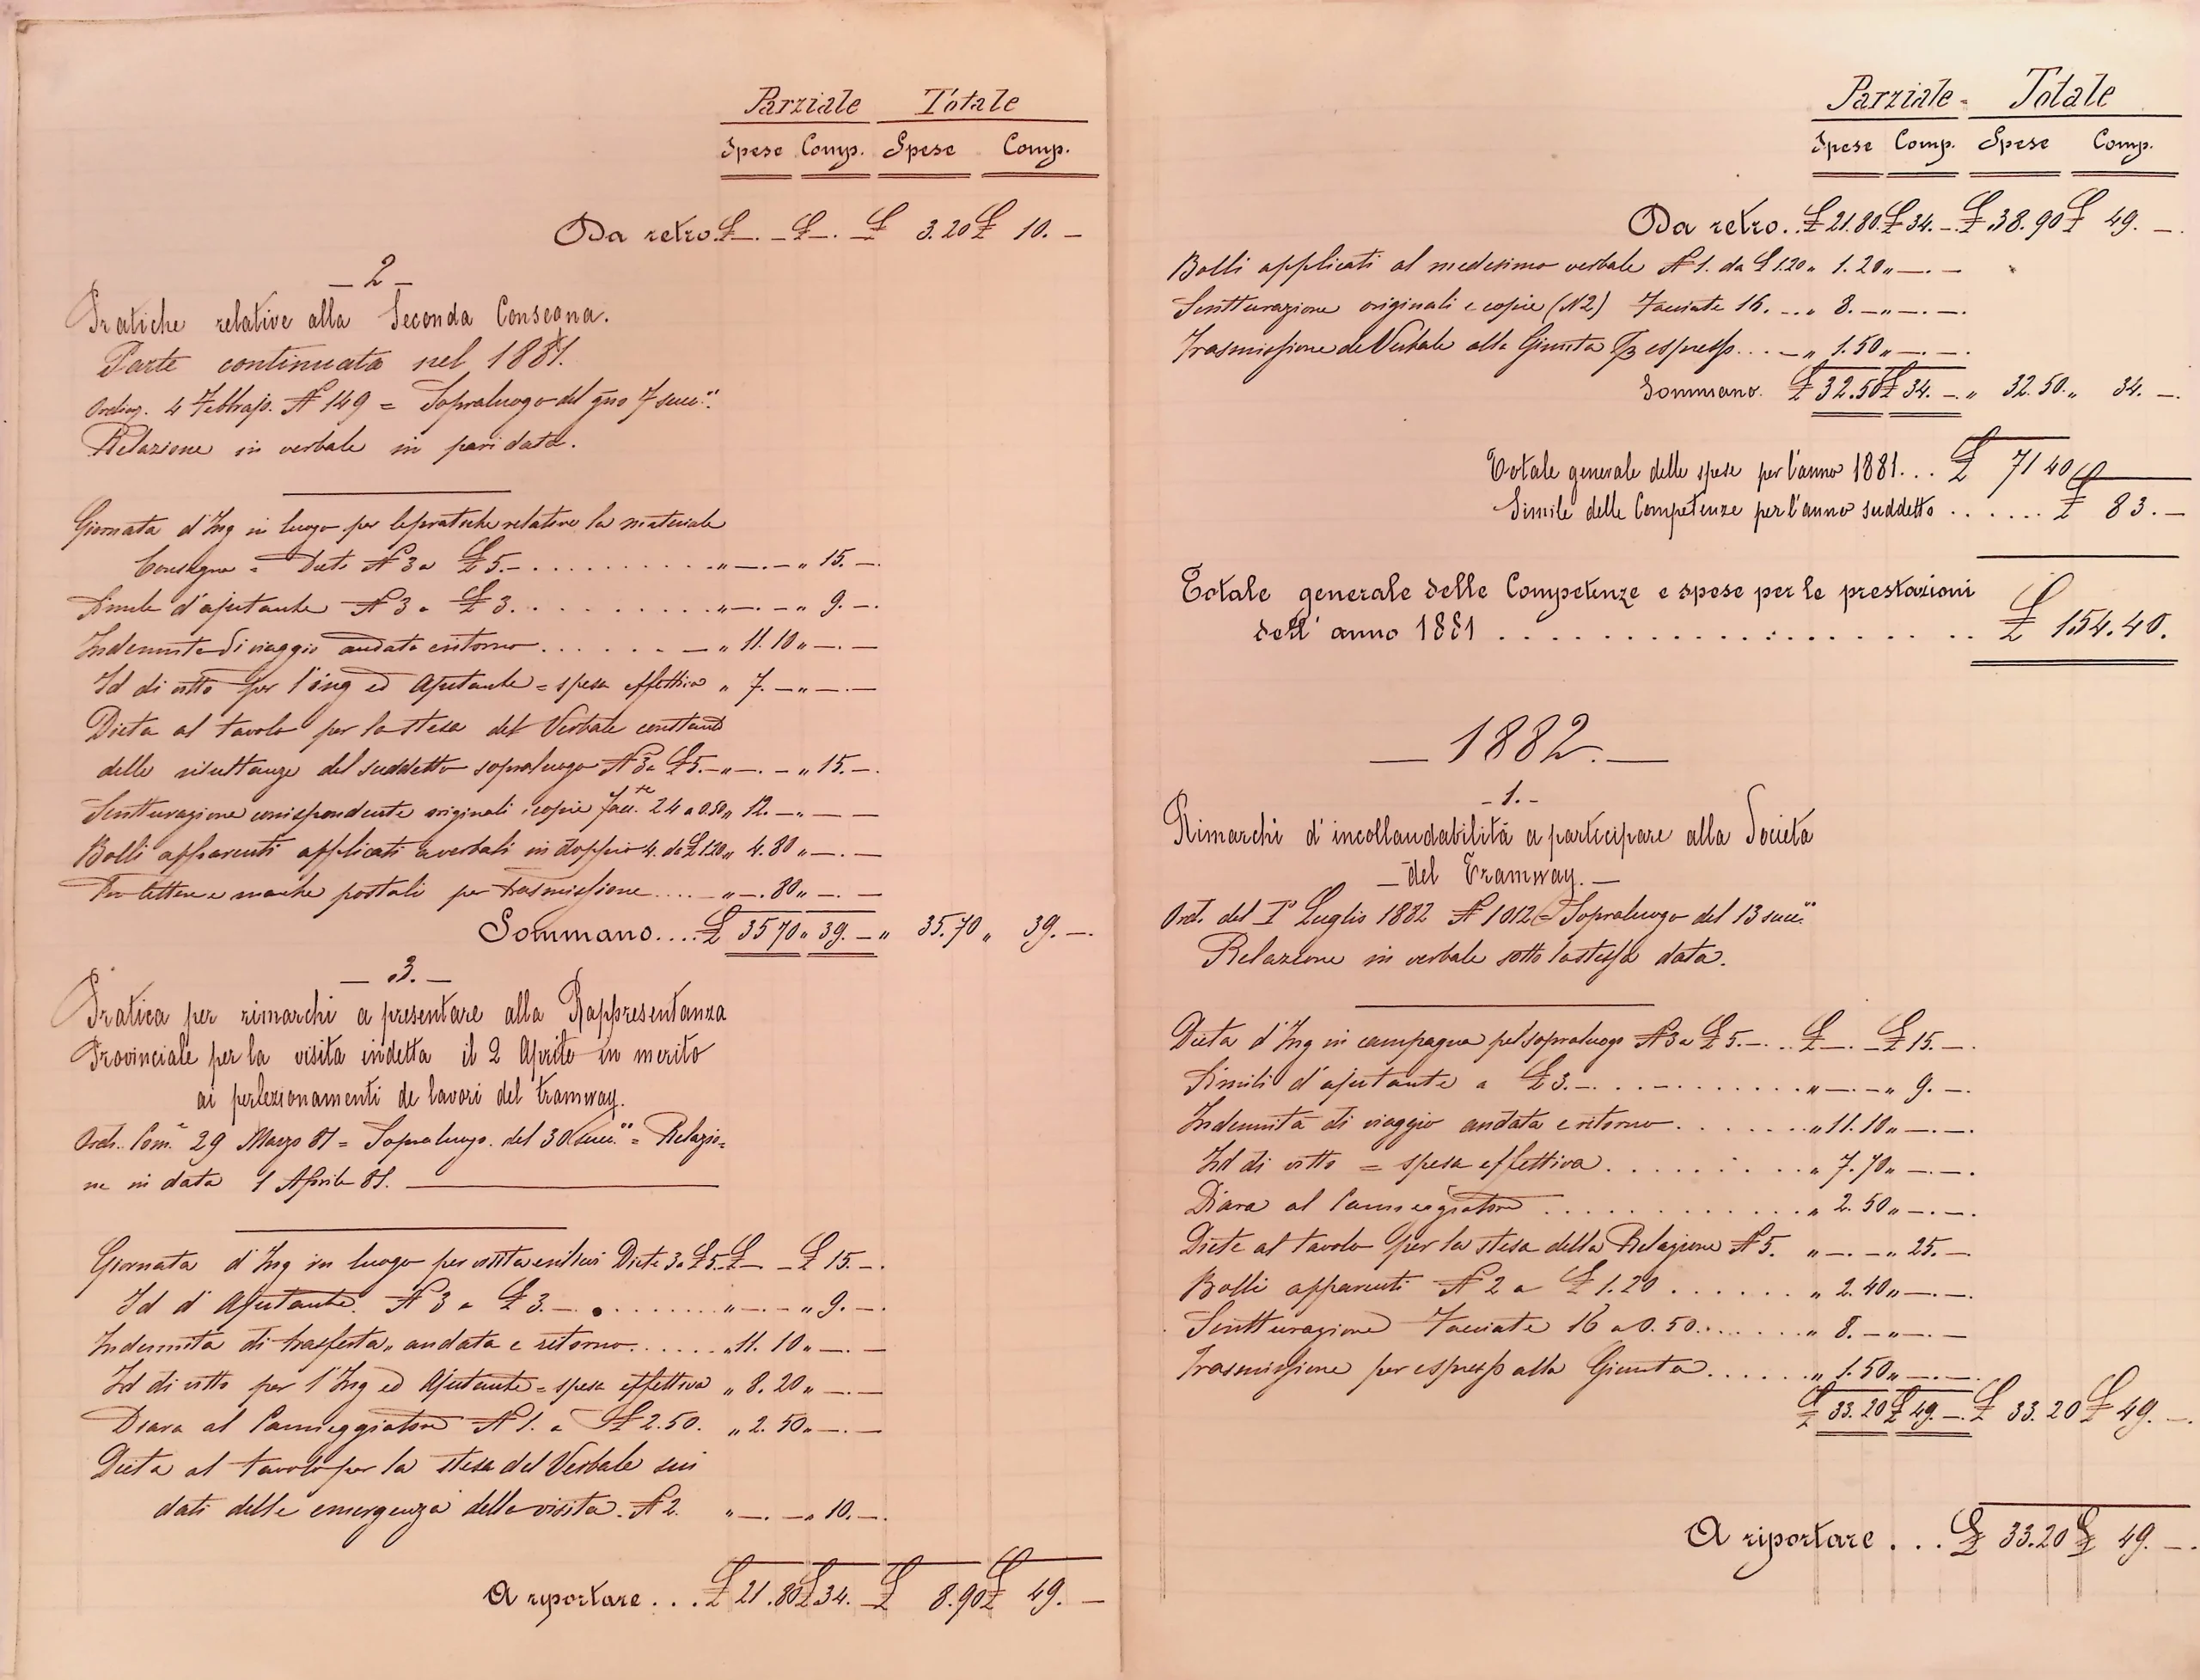 Parziale Totale
Spese Comp. Spese Comp.
Da retro. £ —. — £ —. — £ 3.20 £ 10. —
— 2 —
Pratiche relative alla Seconda Consegna.
Parte continuata nel 1881.
Ordinz. 4 Febbrajo. N 149 = Sopraluogo del gno 7 succ.
Relazione in verbale in pari data.
Giornata d'Ing in luogo per le pratiche relative la materiale
Consegna = Diete N 3 a £ 5.— . . . . . . . . . . „ —. — „ 15. —.
Simile d'ajutante N 3 a £ 3. . . . . . . . . . „ —. — „ 9. —.
Indennita di viaggio andata e ritorno . . . . . . — „ 11. 10 „ —. —
Id di vitto per l'ing ed Ajutante = spesa effettiva „ 7. — „ —. —
Dieta al tavolo per la stesa del Verbale constand
delle risultanze del suddetto sopraluogo N 3 a £ 5. — „ —. — „ 15. —.
Scritturazione corrispondente originali e copie Facc.te 24 a 0.50 „ 12. — „ — —
Bolli apparenti applicati a verbali in doppio 4. da £ 1.20 „ 4. 80 „ —. —
Per lettere e marche postali per trasmissione .... — „ —. 80 „ —. —
Sommano.... £ 35 70 „ 39. — „ 35.70 „ 39. —.
— 3. —
Pratica per rimarchi a presentare alla Rappresentanza
Provinciale per la visita indetta il 2 Aprile in merito
ai perfezionamenti de lavori del tramway.
Ord. Com.e 29 Marzo 81 = Sopraluogo. del 30 succ. = Relazio=
ne in data 1 Aprile 81. —
Giornata d'Ing in luogo per visita e rilievi Diete 3 a £ 5. £ — — £ 15. —.
Id d' Ajutante. N 3 a £ 3. — . . . . . . . . „ —. — „ 9. —.
Indennita di trasferta, andata e ritorno. . . . . . „ 11. 10 „ —. —
Id di vitto per l'Ing ed Ajutante = spesa effettiva „ 8. 20 „ —. —
Diara al Canneggiatore N 1. a £ 2.50. „ 2. 50 „ —. —
Dieta al tavolo per la stesa del Verbale sui
dati delle emergenza della visita. N 2. „ —. — „ 10. —.
A riportare . . . £ 21. 80 £ 34. — £ 8.90 £ 49. —
Parziale Totale
Spese Comp. Spese Comp.
Da retro. . £ 21.80. £ 34. — . £ 38.90 £ 49. —.
Bolli applicati al medesimo verbale N 1. da £ 1.20 „ 1. 20 „ —. —
Scritturazione originali e copie (N 2) Facciate 16. . . . „ 8. — „ —. —.
Trasmissione de Verbale alla Giunta espresso. . . . — „ 1.50 „ —. —.
Sommano. £ 32.50 £ 34. — . „ 32.50. „ 34. —.
Totale generale delle spese per l'anno 1881. . . £ 71 40
Simile delle Competenze per l'anno suddetto . . . . . . . £ 83. —
Totale generale delle Competenze e spese per le prestazioni
dell' anno 1881 . . . . . . . . . . . . . . . . . . . £ 154.40.
— 1882. —
– 1. –
Rimarchi d'incollaudabilità a partecipare alla Società
— del Tramway. —
Ord. del I° Luglio 1882 N 1012 = Sopraluogo del 13 succ.
Relazione in verbale sotto la stessa data.
Dieta d'Ing in campagna pel sopraluogo N 3 a £ 5. — . . £ —. — £ 15. —.
Simili d'ajutante a £ 3. — . . . . . . . . . . . „ —. — „ 9. —.
Indennità di viaggio andata e ritorno . . . . . . . . „ 11. 10 „ —. —.
Id di vitto = spesa effettiva . . . . . . . . . „ 7. 70 „ —. —.
Diara al Canneggiatore . . . . . . . . . . . . . . „ 2. 50 „ —. —.
Diete al tavolo per la stesa della Relazione N 5. „ —. — „ 25. —.
Bolli apparenti N 2 a £ 1.20 . . . . . . . „ 2. 40 „ —. —.
Scritturazione Facciate 16 a 0. 50. . . . . . . „ 8. — „ —. —
Trasmissione per espresso alla Giunta . . . . . . „ 1. 50 „ —. —.
£ 33. 20 £ 49. —. £ 33. 20 £ 49. —.
A riportare . . . £ 33.20 £ 49. — .